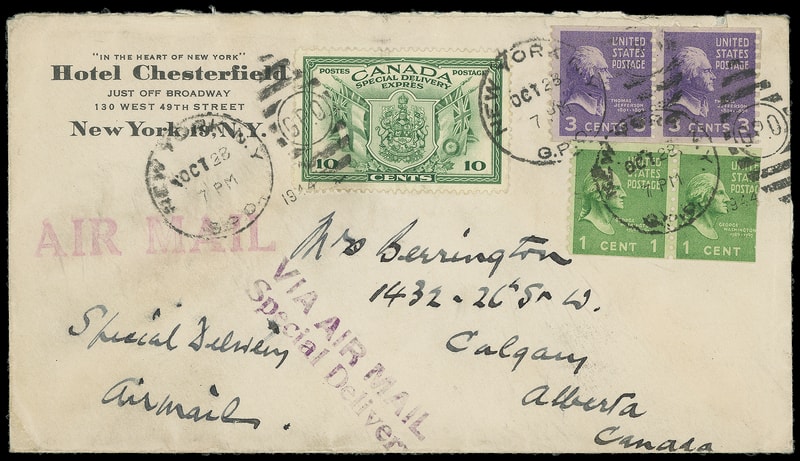 "IN THE HEART OF NEW YORK"
Hotel Chesterfield
JUST OFF BROADWAY
130 WEST 49TH STREET
New York 19, N.Y.
POSTES CANADA POSTAGE
SPECIAL DELIVERY
EXPRES
10 10
CENTS
UNITED STATES POSTAGE
THOMAS JEFFERSON
3 CENTS
UNITED STATES POSTAGE
3 CENTS 3
UNITED STATES POSTAGE
1 CENT 1
UNITED STATES POSTAGE
GEORGE WASHINGTON
1 CENT
NEW YORK, N.Y.
OCT 28
7 PM
G.P.O.
1944
GPO
NEW YORK, N.Y.
OCT 28
7 PM
G.P.O.
NEW YORK, N.Y.
OCT 28
7 PM
G.P.O.
1944
GPO
AIR MAIL
VIA AIR MAIL
Special Delivery
Mrs Berrington
Calgary
Alberta
Canada
Special Delivery
Airmail.